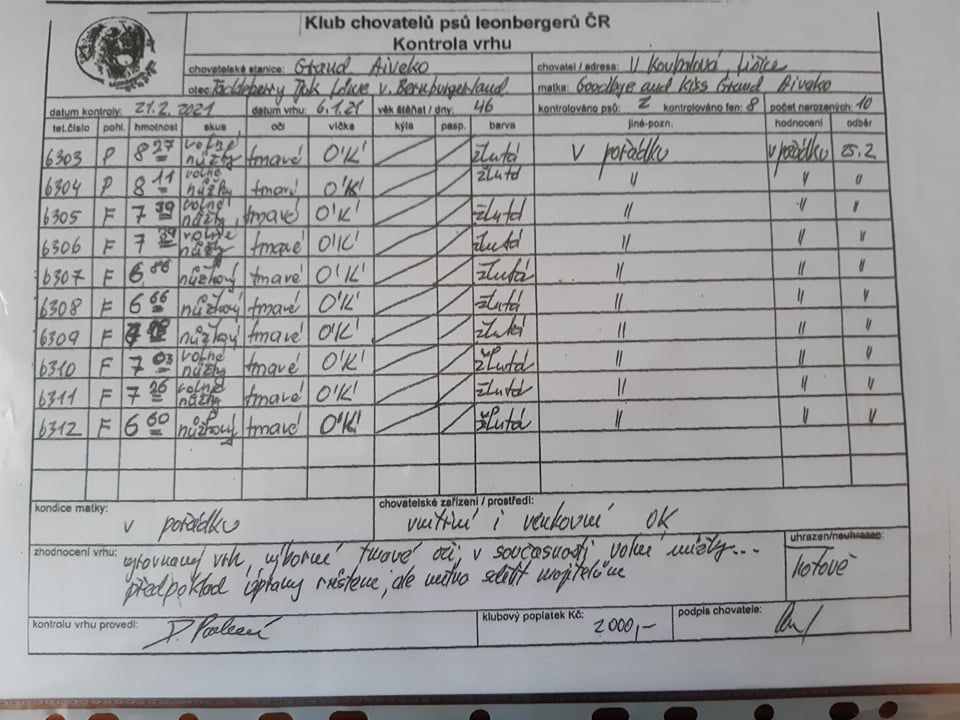 Klub chovatelů psů leonbergerů ČR
Kontrola vrhu
chovatelské stanice: Grand Aiveko chovatel / adresa: V. Kovbolová
otec: Tackleberry v. Bernburgerland matka: Goodbye and Kiss Grand Aiveko
datum kontroly: 21.2.2021 datum vrhu: 6.1.21 věk štěňat / dny: 46 kontrolováno psů: 2 kontrolováno fen: 8 počet narozených: 10
tet.číslo pohl. hmotnost skus oči víčka kýla pasp. barva jiné-pozn. hodnocení odběr
6303 P 8 27 volné nůžky tmavé O'K' žlutá v pořádku v pořádku 25.2
6304 P 8 11 volné nůžky tmavé O'K' žlutá " " "
6305 F 7 39 volné nůžky tmavé O'K' žlutá " " "
6306 F 7 39 volné nůžky tmavé O'K' žlutá " " "
6307 F 6 86 nůžkový tmavé O'K' žlutá " " "
6308 F 6 66 nůžkový tmavé O'K' žlutá " " "
6309 F nůžkový tmavé O'K' žlutá " " "
6310 F 7 03 volné nůžky tmavé O'K' žlutá " " "
6311 F 7 26 volné nůžky tmavé O'K' žlutá " " "
6312 F 6 60 nůžkový tmavé O'K' žlutá " " "
kondice matky: chovatelské zařízení / prostředí:
v pořádku vnitřní i venkovní OK
zhodnocení vrhu: uhrazen/neuhrazen:
vyrovnaný vrh, výborné tmavé oči, v současnosti volné nůžky... hotově
předpoklad úpravy růstem, ale nutno sdělit majitelům
kontrolu vrhu provedl: klubový poplatek Kč: 2000,- podpis chovatele: